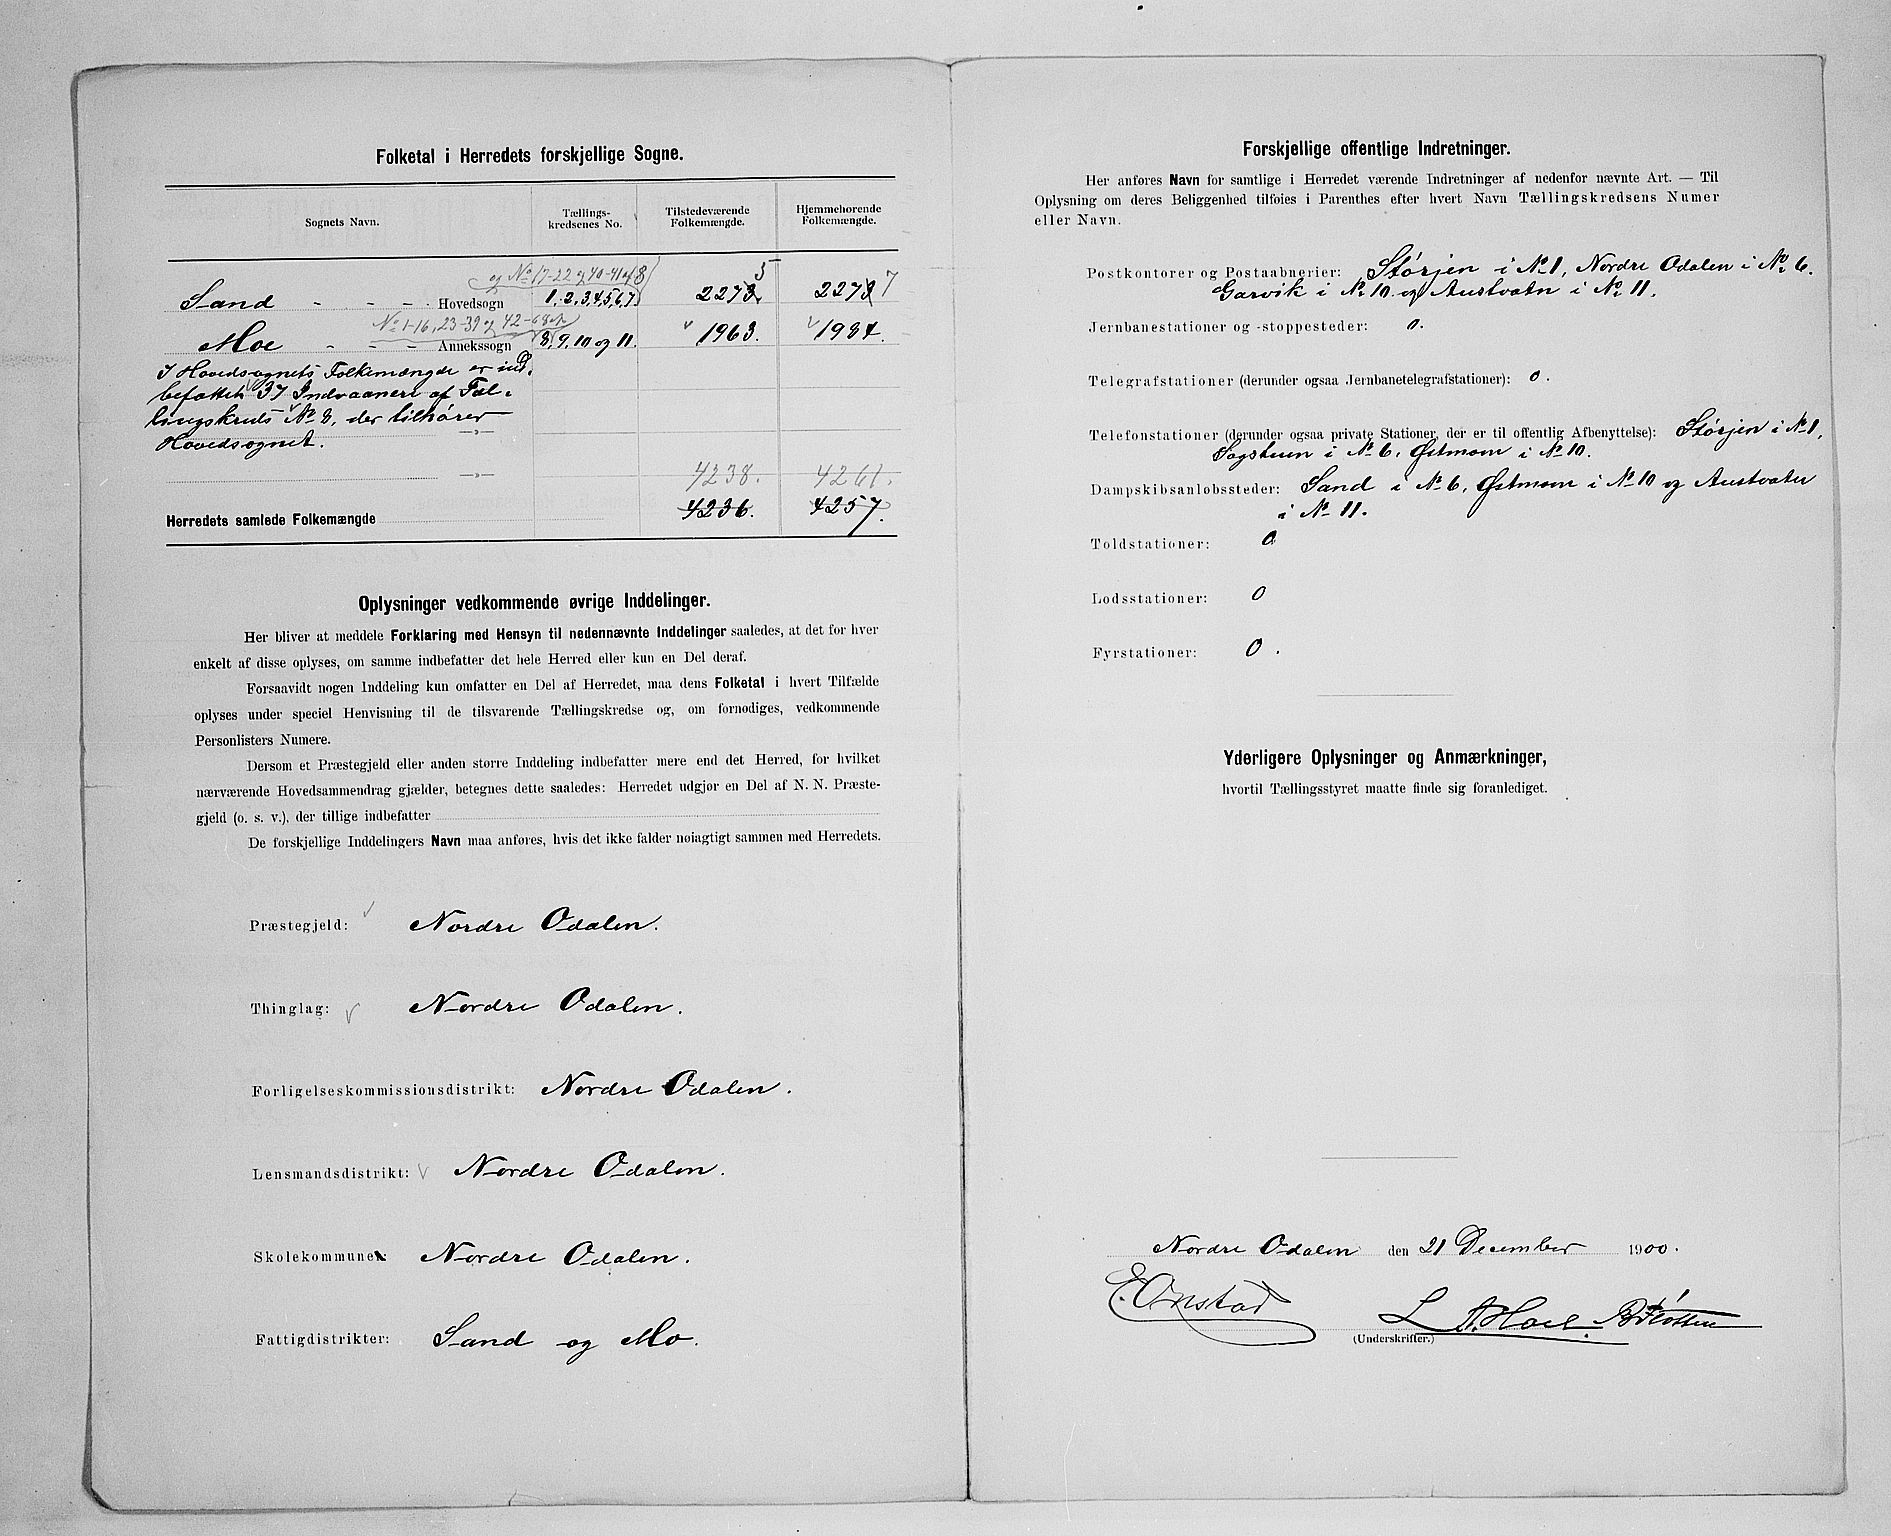 Folketal i Herredets forskjellige Sogne.
Sognets Navn.
Tællings-
kredsenes No.
Tilstedeværende
Folkemængde.
Hjemmehørende
Folkemængde.
og No 17-22 og 40-41 af 8
5
7
Sand - - - Hovedsogn 1, 2, 3, 4, 5, 6, 7, 2273. 2273
No 1-16, 23-39 og 42-68 af
Moe - - - Annekssogn 8, 9, 10 og 11. 1963. 1984.
I Hovedsognets Folkemængde er ind-
befattet 37 Indvaanere af Tæl-
lingskreds No 8, der tilhører
Hovedsognet. —»—
—»— 4238. 4261.
Herredets samlede Folkemængde 4236. 4257.
Oplysninger vedkommende øvrige Inddelinger.
Her bliver at meddele Forklaring med Hensyn til nedennævnte Inddelinger saaledes, at det for hver
enkelt af disse oplyses, om samme indbefatter det hele Herred eller kun en Del deraf.
Forsaavidt nogen Inddeling kun omfatter en Del af Herredet, maa dens Folketal i hvert Tilfælde
oplyses under speciel Henvisning til de tilsvarende Tællingskredse og, om fornødiges, vedkommende
Personlisters Numere.
Dersom et Præstegjeld eller anden større Inddeling indbefatter mere end det Herred, for hvilket
nærværende Hovedsammendrag gjælder, betegnes dette saaledes: Herredet udgjør en Del af N. N. Præste-
gjeld (o. s. v.), der tillige indbefatter
De forskjellige Inddelingers Navn maa anføres, hvis det ikke falder nøiagtigt sammen med Herredets.
Præstegjeld: Nordre Odalen.
Thinglag: Nordre Odalen.
Forligelseskommissionsdistrikt: Nordre Odalen.
Lensmandsdistrikt: Nordre Odalen.
Skolekommune: Nordre Odalen.
Fattigdistrikter: Sand og Mo.
Forskjellige offentlige Indretninger.
Her anføres Navn for samtlige i Herredet værende Indretninger af nedenfor nævnte Art. — Til
Oplysning om deres Beliggenhed tilføies i Parenthes efter hvert Navn Tællingskredsens Numer
eller Navn.
Postkontorer og Postaabnerier: Størjen i No 1, Nordre Odalen i No 6.
Garvik i No 10 og Austvatn i No 11.
Jernbanestationer og -stoppesteder: 0.
Telegrafstationer (derunder ogsaa Jernbanetelegrafstationer): 0.
Telefonstationer (derunder ogsaa private Stationer, der er til offentlig Afbenyttelse): Størjen i No 1,
Sagstuen i No 6, Østmoen i No 10.
Dampskibsanløbssteder: Sand i No 6, Østmoen i No 10 og Austvatn
i No 11.
Toldstationer: 0
Lodsstationer: 0
Fyrstationer: 0.
Yderligere Oplysninger og Anmærkninger,
hvortil Tællingsstyret maatte finde sig foranlediget.
Nordre Odalen den 21 December 1900.
E. Onstad L A. Hoel.
(Underskrifter.)